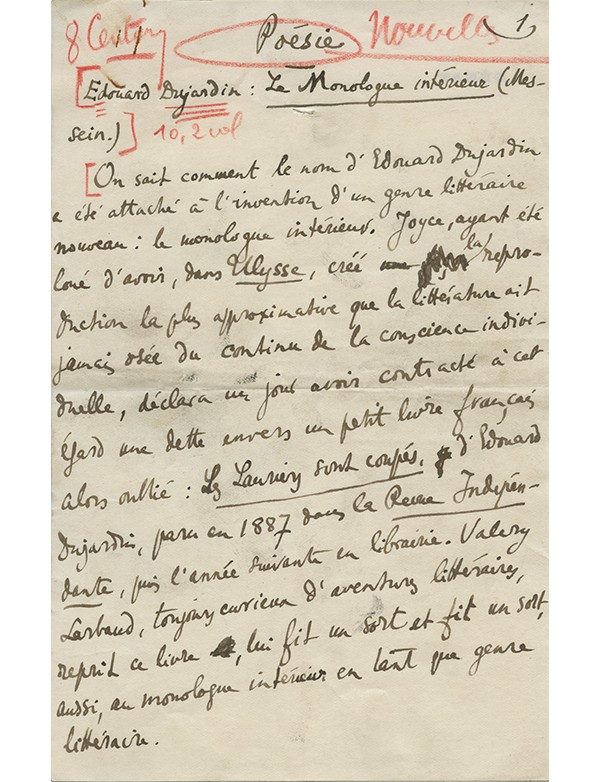 8 Century Poésie Nouvelle 1)
[Edouard Dujardin : Le Monologue intérieur (Mes-
sein.)] 10, 2 col
[On sait comment le nom d'Edouard Dujardin
a été attaché à l'invention d'un genre littéraire
nouveau : le monologue intérieur. Joyce, ayant été
loué d'avoir, dans Ulysse, créé la repro-
duction la plus approximative que la littérature ait
jamais osée du continu de la conscience indivi-
duelle, déclara un jour avoir contracté à cet
égard une dette envers un petit livre français
alors oublié : Les Lauriers sont coupés, d'Edouard
Dujardin, paru en 1887 dans la Revue Indépen-
dante, puis l'année suivante en librairie. Valery
Larbaud, toujours curieux d'aventures littéraires,
reprit ce livre, lui fit un sort et fit un sort,
aussi, au monologue intérieur en tant que genre
littéraire.